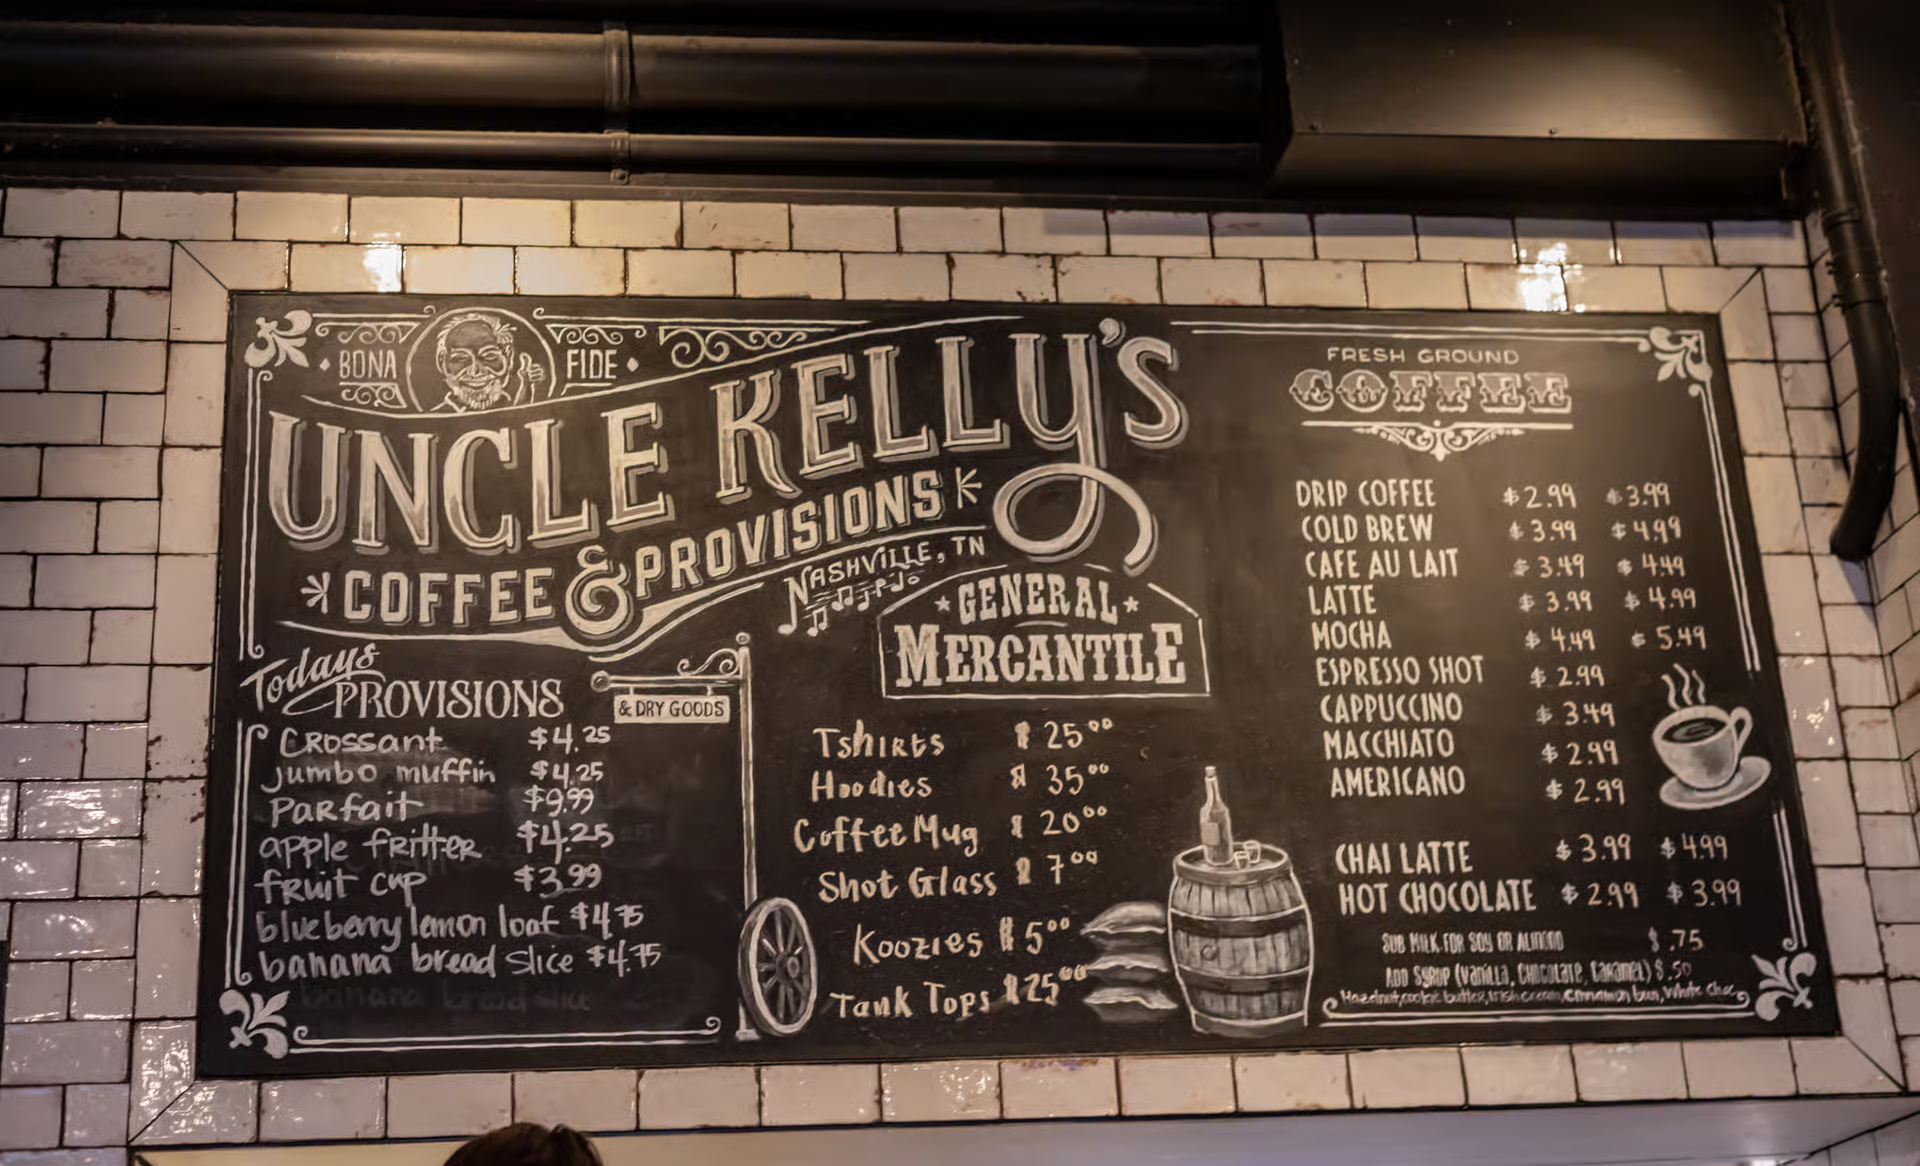 BONA FIDE
UNCLE KELLY'S
COFFEE & PROVISIONS
NASHVILLE, TN
Todays
PROVISIONS
& DRY GOODS
Crossant $4.25
jumbo muffin $4.25
Parfait $9.99
apple fritter $4.25
fruit cup $3.99
blueberry lemon loaf $4.75
banana bread slice $4.75
banana bread slice
GENERAL
MERCANTILE
Tshirts $25.00
Hoodies $35.00
Coffee Mug $20.00
Shot Glass $7.00
Koozies $5.00
Tank Tops $25.00
FRESH GROUND
COFFEE
DRIP COFFEE $2.99 $3.99
COLD BREW $3.99 $4.99
CAFE AU LAIT $3.49 $4.49
LATTE $3.99 $4.99
MOCHA $4.49 $5.49
ESPRESSO SHOT $2.99
CAPPUCCINO $3.49
MACCHIATO $2.99
AMERICANO $2.99
CHAI LATTE $3.99 $4.99
HOT CHOCOLATE $2.99 $3.99
SUB MILK FOR SOY OR ALMOND $.75
ADD SYRUP (VANILLA, CHOCOLATE, CARAMEL) $.50
Hazelnut, cookie butter, Irish cream, cinnamon bun, white choc